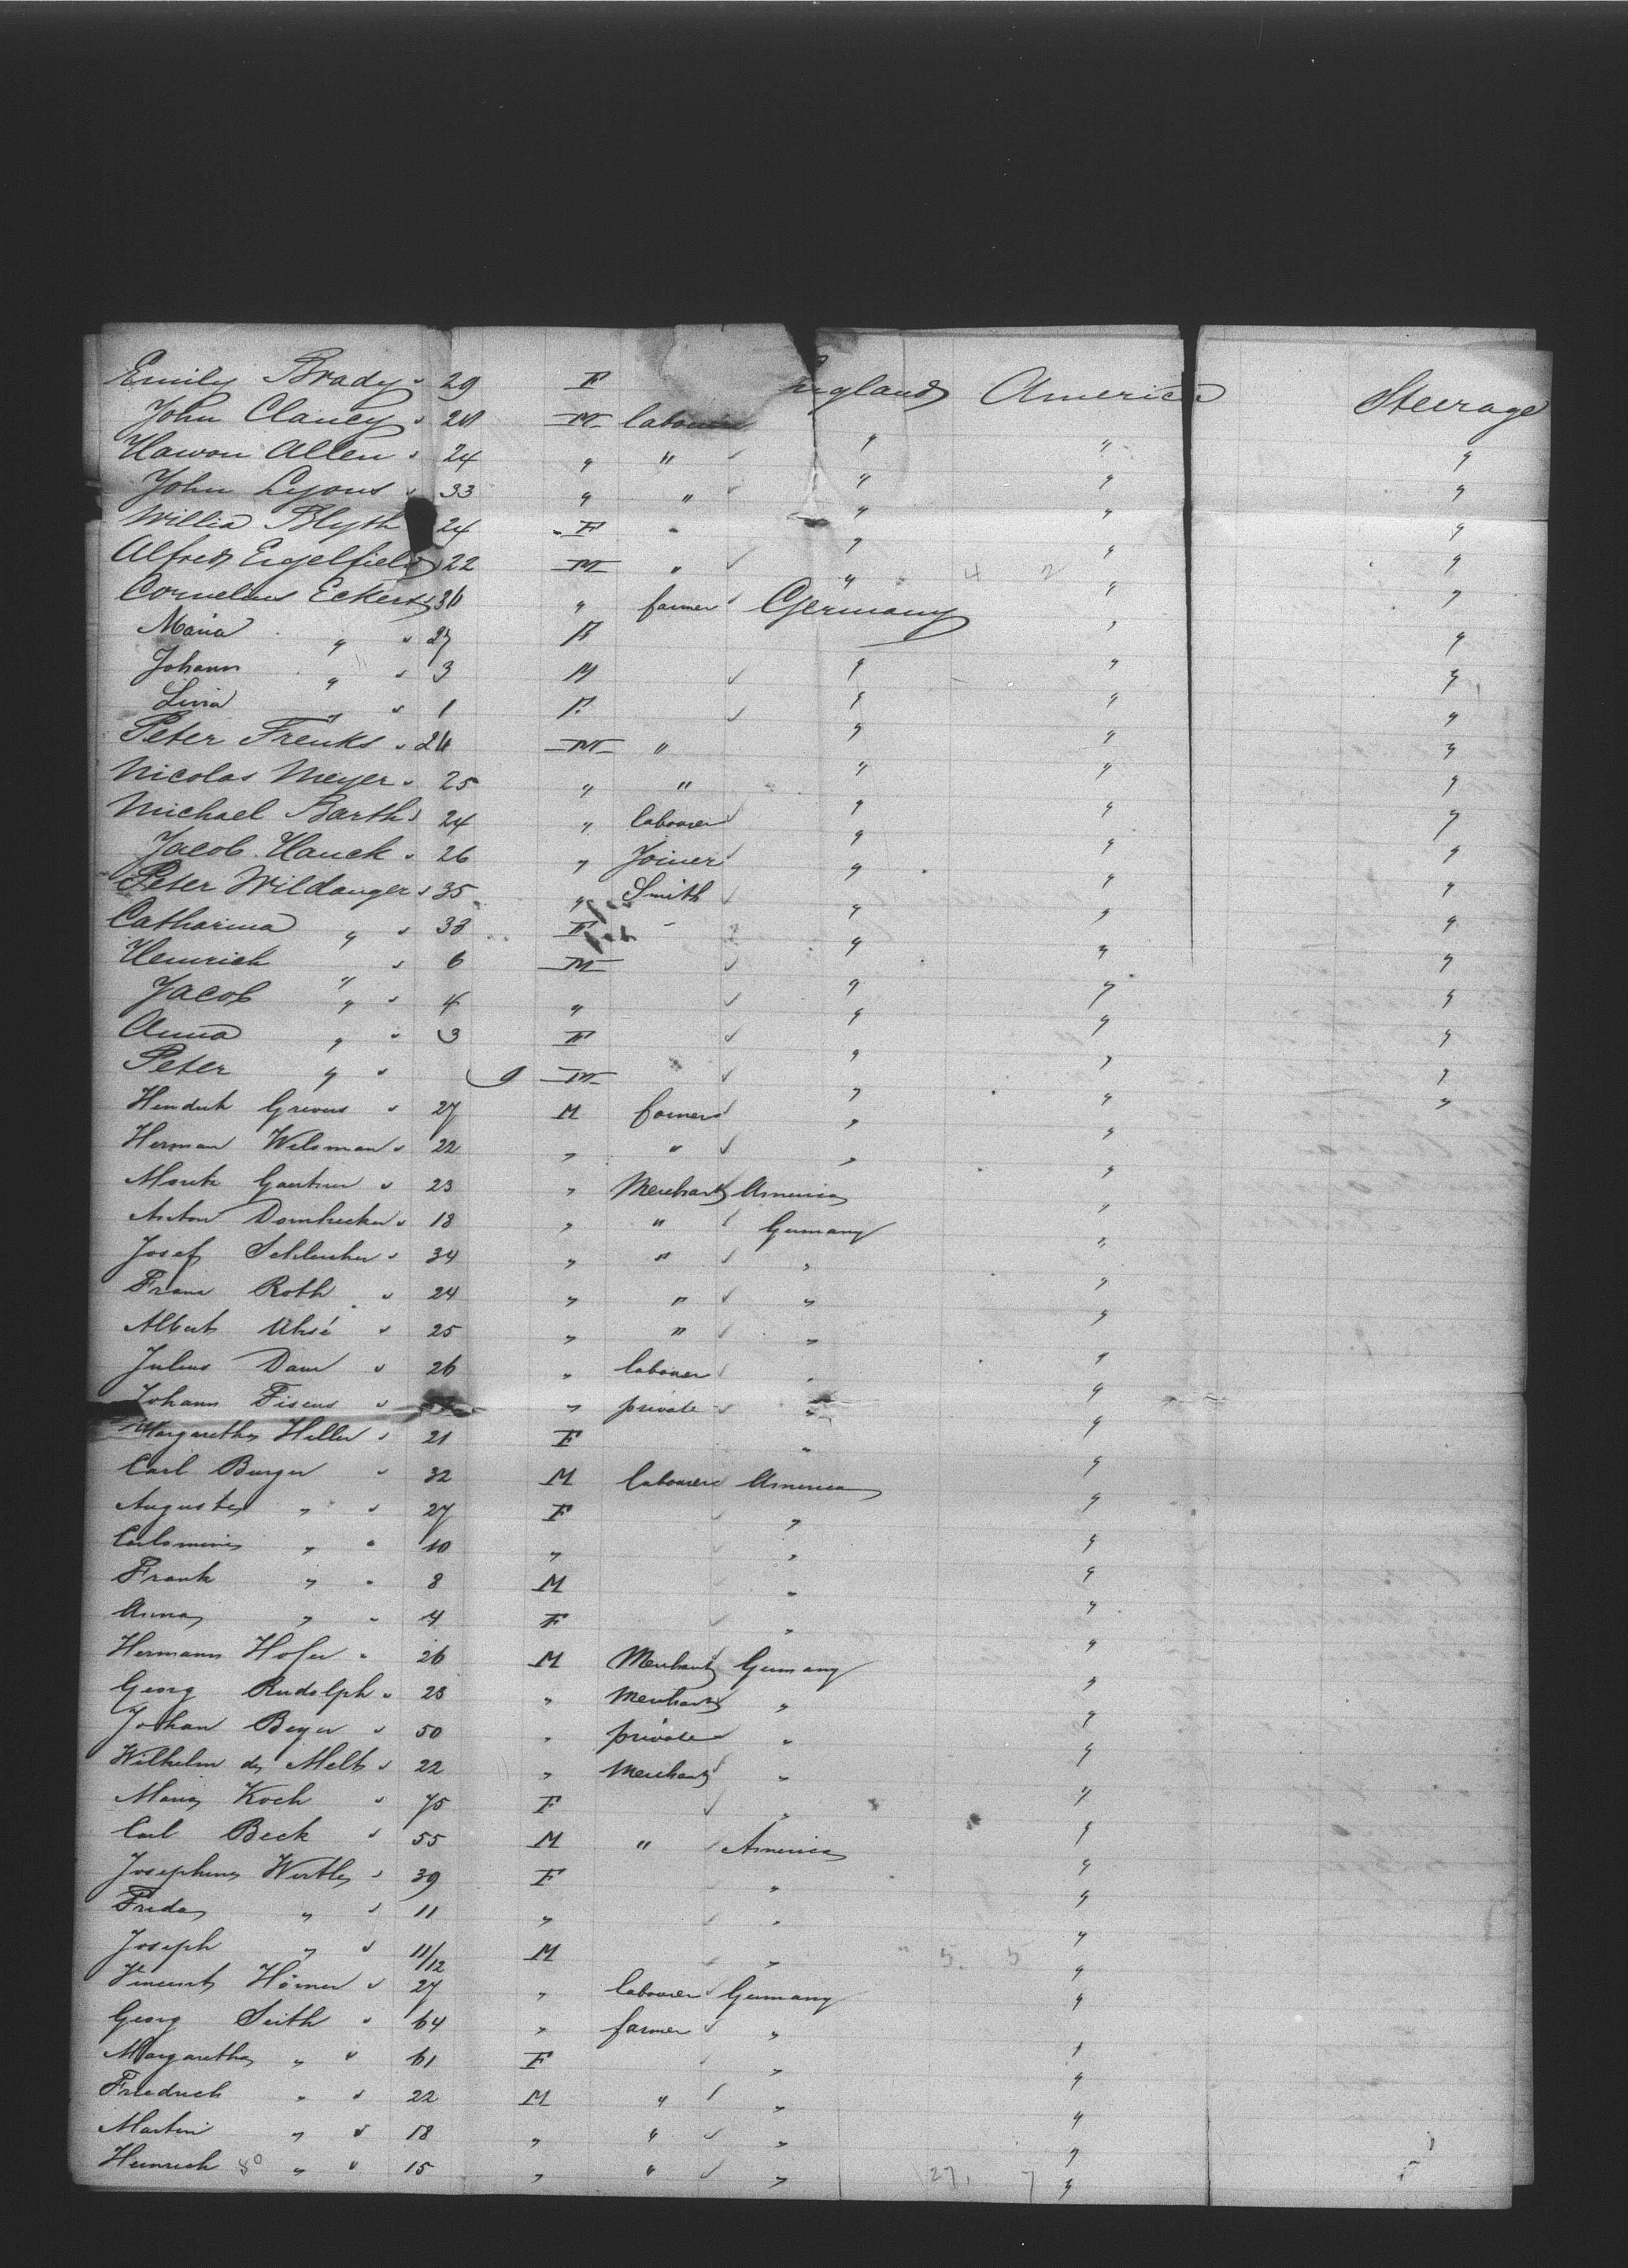 Emily Brady 29 F England America Steerage
John Clancy 20 M labourer " " "
Hawon Allen 24 " " " " "
John Lyons 33 " " " " "
Willia Blyth 24 F " " " "
Alfred Engelfield 22 M " " " "
Cornelius Eckert 30 " farmer Germany " "
Maria " 27 F " " "
Johann " 3 M " " "
Lina " 1 F " " "
Peter Frenks 24 M " " " "
Nicolas Meyer 25 " " " " "
Michael Barth 24 " labourer " " "
Jacob Hauck 26 " Joiner " " "
Peter Wildanger 35 " Smith " " "
Catharina " 33 F " " "
Heinrich " 6 M " " "
Jacob " 4 " " " "
Anna " 3 F " " "
Peter " 9 M " " "
Hendrik Grevers 27 M farmer " " "
Herman Welsman 22 " " " "
Moritz Gardner 23 " Merchant America "
Anton 18 " " Germany "
Josef Schlenker 34 " " " "
Franz Roth 24 " " " "
Albert 25 " " " "
Julius Dam 26 " labourer " "
Johann Fiscus " private " "
Margaretha Heller 21 F " "
Carl Burger 32 M labourer America "
Auguste " 27 F " "
" 10 " " "
Frank " 8 M " "
Anna " 4 F " "
Hermann Hofer 26 M Merchant Germany "
Georg Rudolph 23 " Merchant " "
Johan Beyer 50 " private " "
Wilhelm de Melt 22 " Merchant " "
Maria Koch 75 F " "
Carl Beck 55 M " America "
Josephine Wertle 39 F " "
Frieda " 11 " " "
Joseph " 11/12 M " "
Vincent Hörner 27 " labourer Germany "
Georg Seith 64 " farmer " "
Margaretha " 61 F " "
Friedrich " 22 M " " "
Martin " 18 " " " "
Heinrich 50 " 15 " " " "